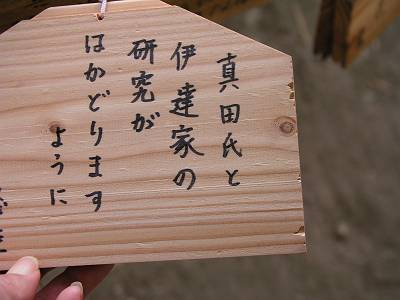 真田氏と
伊達家の
研究が
はかどります
ように